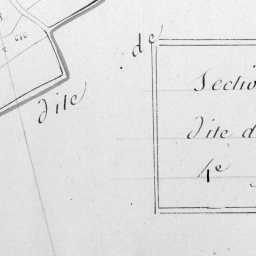 de
dite
Sectio
dite d
4e